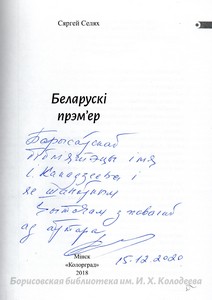 Сяргей Селях
Беларускі
прэм'ер
Барысаўскай
імя
і
яе шаноўным
чытачам з павагай
ад аўтара
15.12.2020
Мінск
«Колорград»
2018
Борисовская библиотека им. И. Х. Колодеева